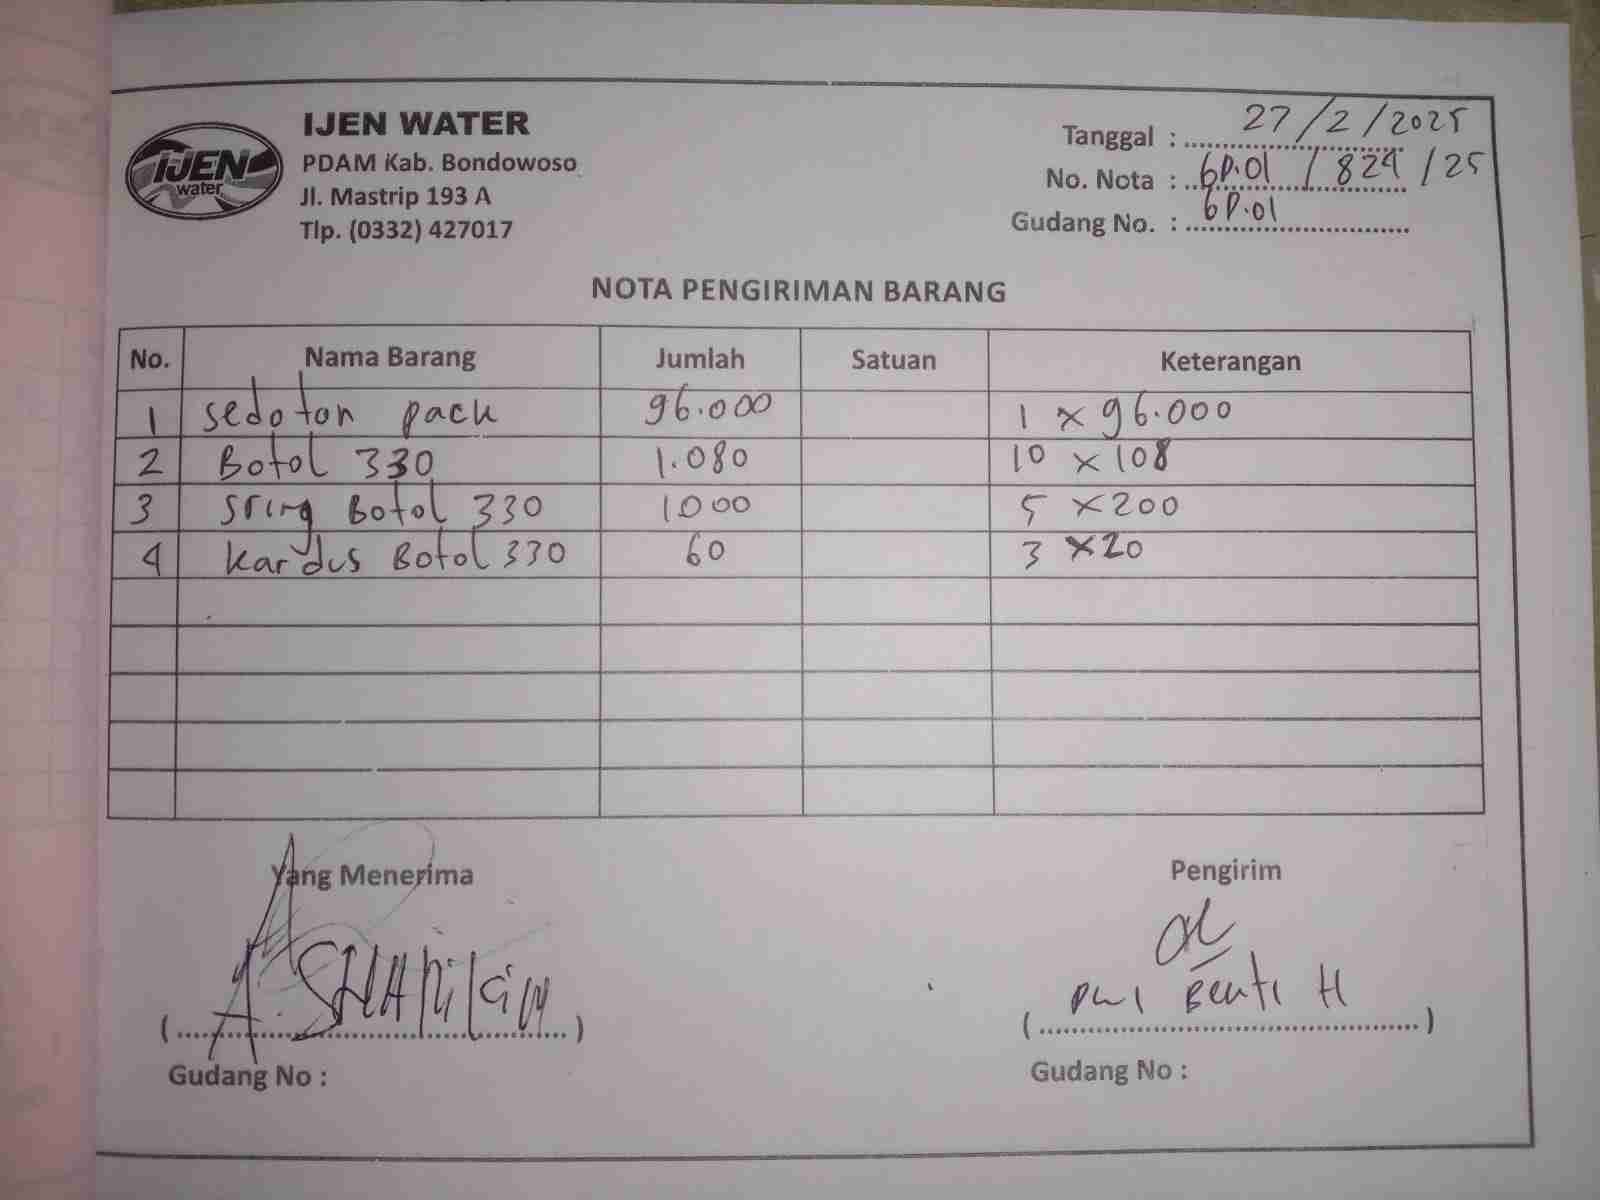 IJEN
water
IJEN WATER
PDAM Kab. Bondowoso
Jl. Mastrip 193 A
Tlp. (0332) 427017
Tanggal : 27/2/2025
No. Nota : 6P.01 / 824 / 25
Gudang No. : 6P.01
NOTA PENGIRIMAN BARANG
No. Nama Barang Jumlah Satuan Keterangan
1 sedotan pack 96.000 1 x 96.000
2 Botol 330 1.080 10 x 108
3 Botol 330 1000 5 x 200
4 kardus Botol 330 60 3 x 20
Yang Menerima Pengirim
Gudang No : Gudang No :